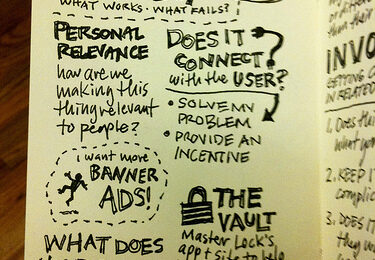 WHAT WORKS · WHAT FAILS?
PERSONAL
RELEVANCE
how are we
making this
thing relevant
to people?
i want more
BANNER
ADS!
WHAT DOES
DOES IT
CONNECT
with the USER?
• SOLVE MY
PROBLEM
• PROVIDE AN
INCENTIVE
THE
VAULT
Master Lock's
app + site to help
INVO
GETTING
IN RELATED
1. Does this
what you
2. KEEP IT
complic
3. DOES IT
they w